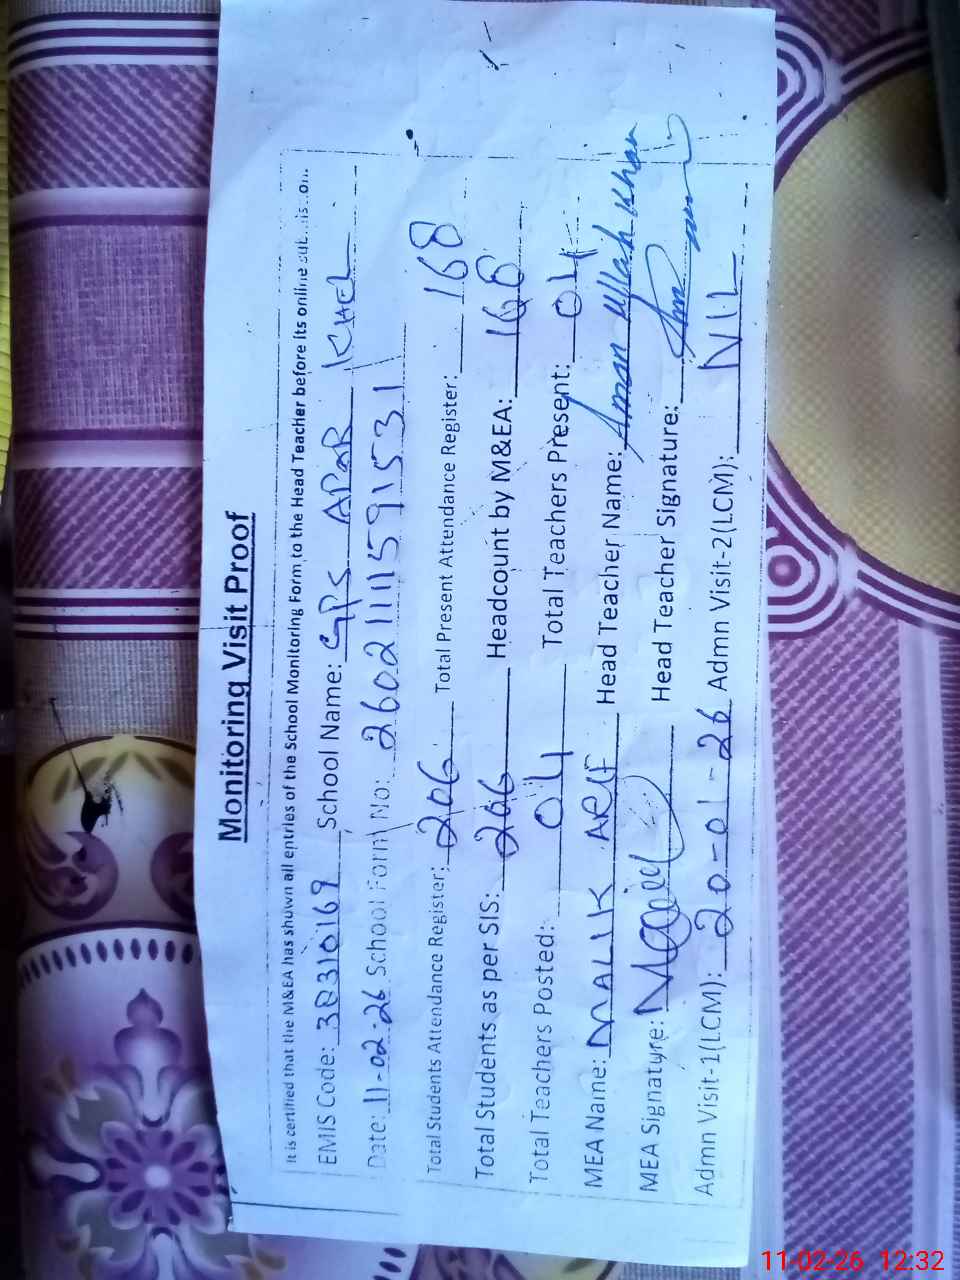 Monitoring Visit Proof
It is certified that the M&EA has shown all entries of the School Monitoring Form to the Head Teacher before its online
EMIS Code: 38310169 School Name: GPS APAR KHEL
Date: 11-02-26 School Form No: 2602111591531
Total Students Attendance Register: 206 Total Present Attendance Register: 168
Total Students as per SIS: 206 Headcount by M&EA: 168
Total Teachers Posted: 04 Total Teachers Present: 04
MEA Name: MALIK ARIF Head Teacher Name: Aman Ullah Khan
MEA Signature: Head Teacher Signature:
Admn Visit-1(LCM): 20-01-26 Admn Visit-2(LCM): NIL
11-02-26 12:32